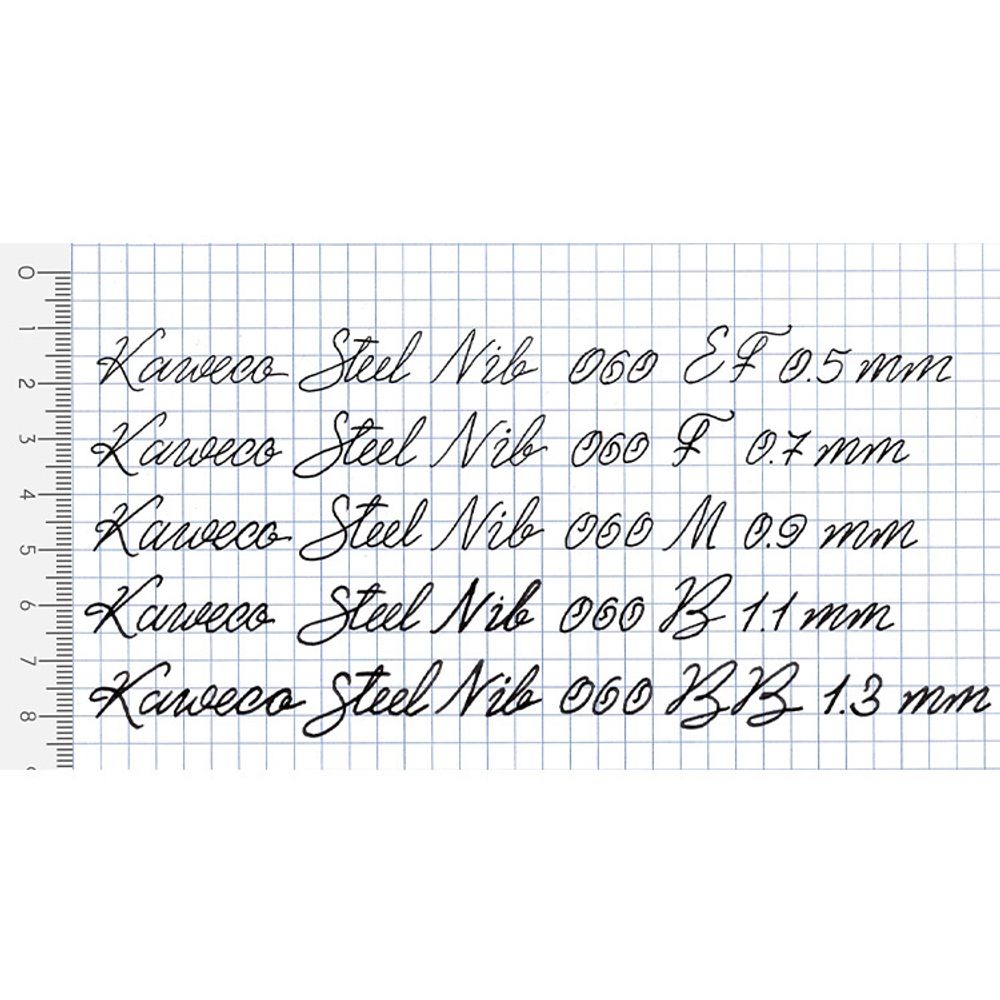 0
1
2
3
4
5
6
7
8
Kaweco Steel Nib 060 EF 0.5 mm
Kaweco Steel Nib 060 F 0.7 mm
Kaweco Steel Nib 060 M 0.9 mm
Kaweco Steel Nib 060 B 1.1 mm
Kaweco Steel Nib 060 BB 1.3 mm